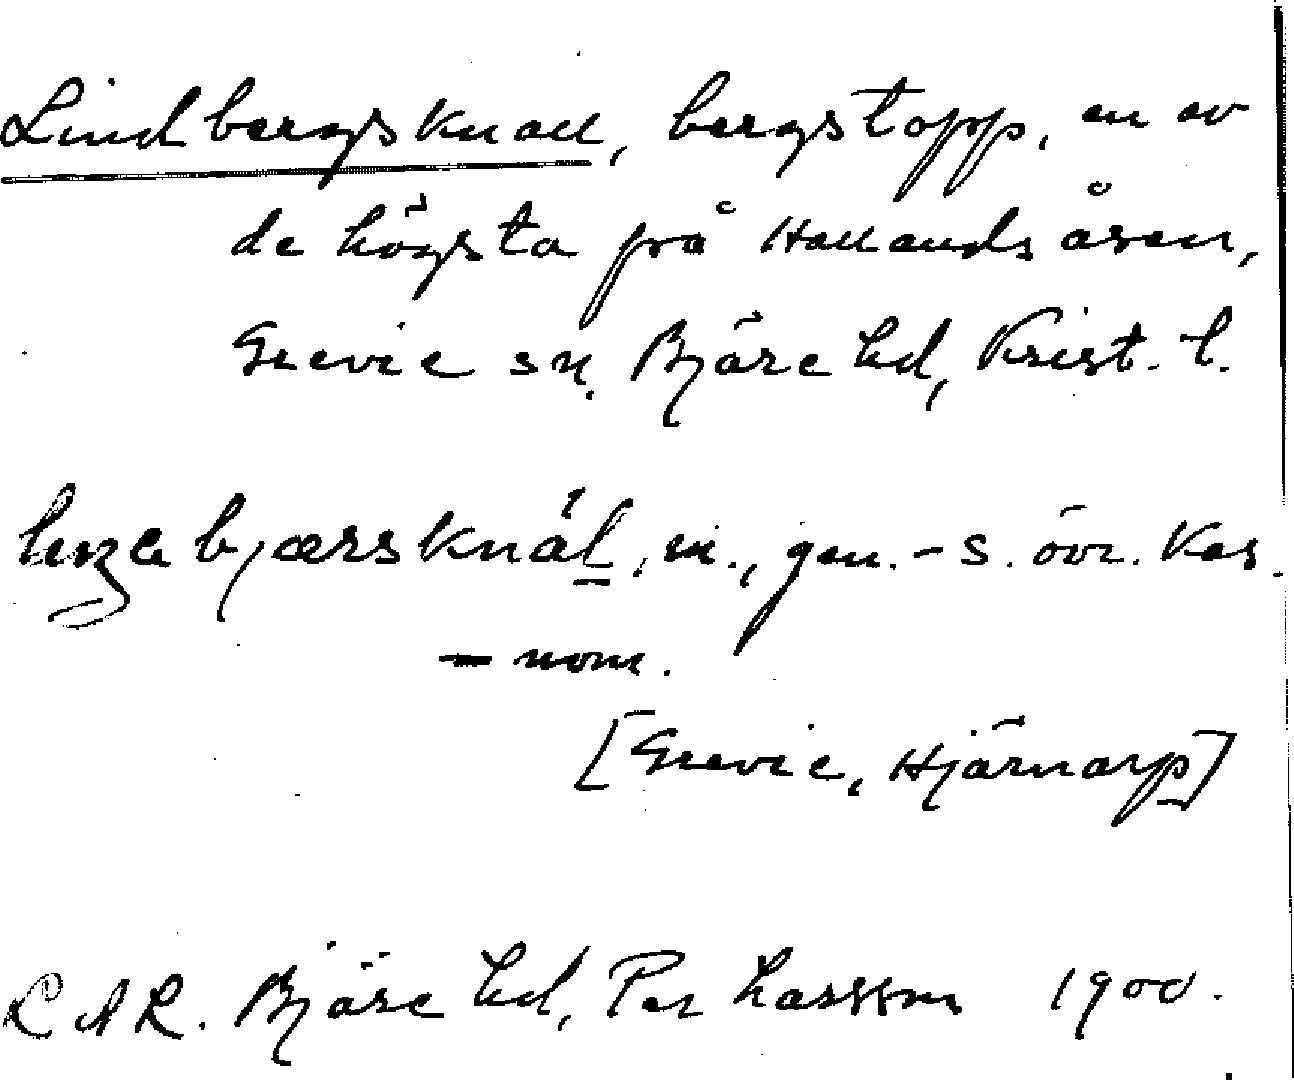 Lindbergsknall, bergstopp, en av
de högsta på Hallandsåsen,
Grevie sn. Bjäre hd, Krist. l.
bjærsknál, m., gen. -s. övr. kas.
- nom.
[Grevie, Hjärnarp]
L A R. Bjäre hd, Per Larsson 1900.